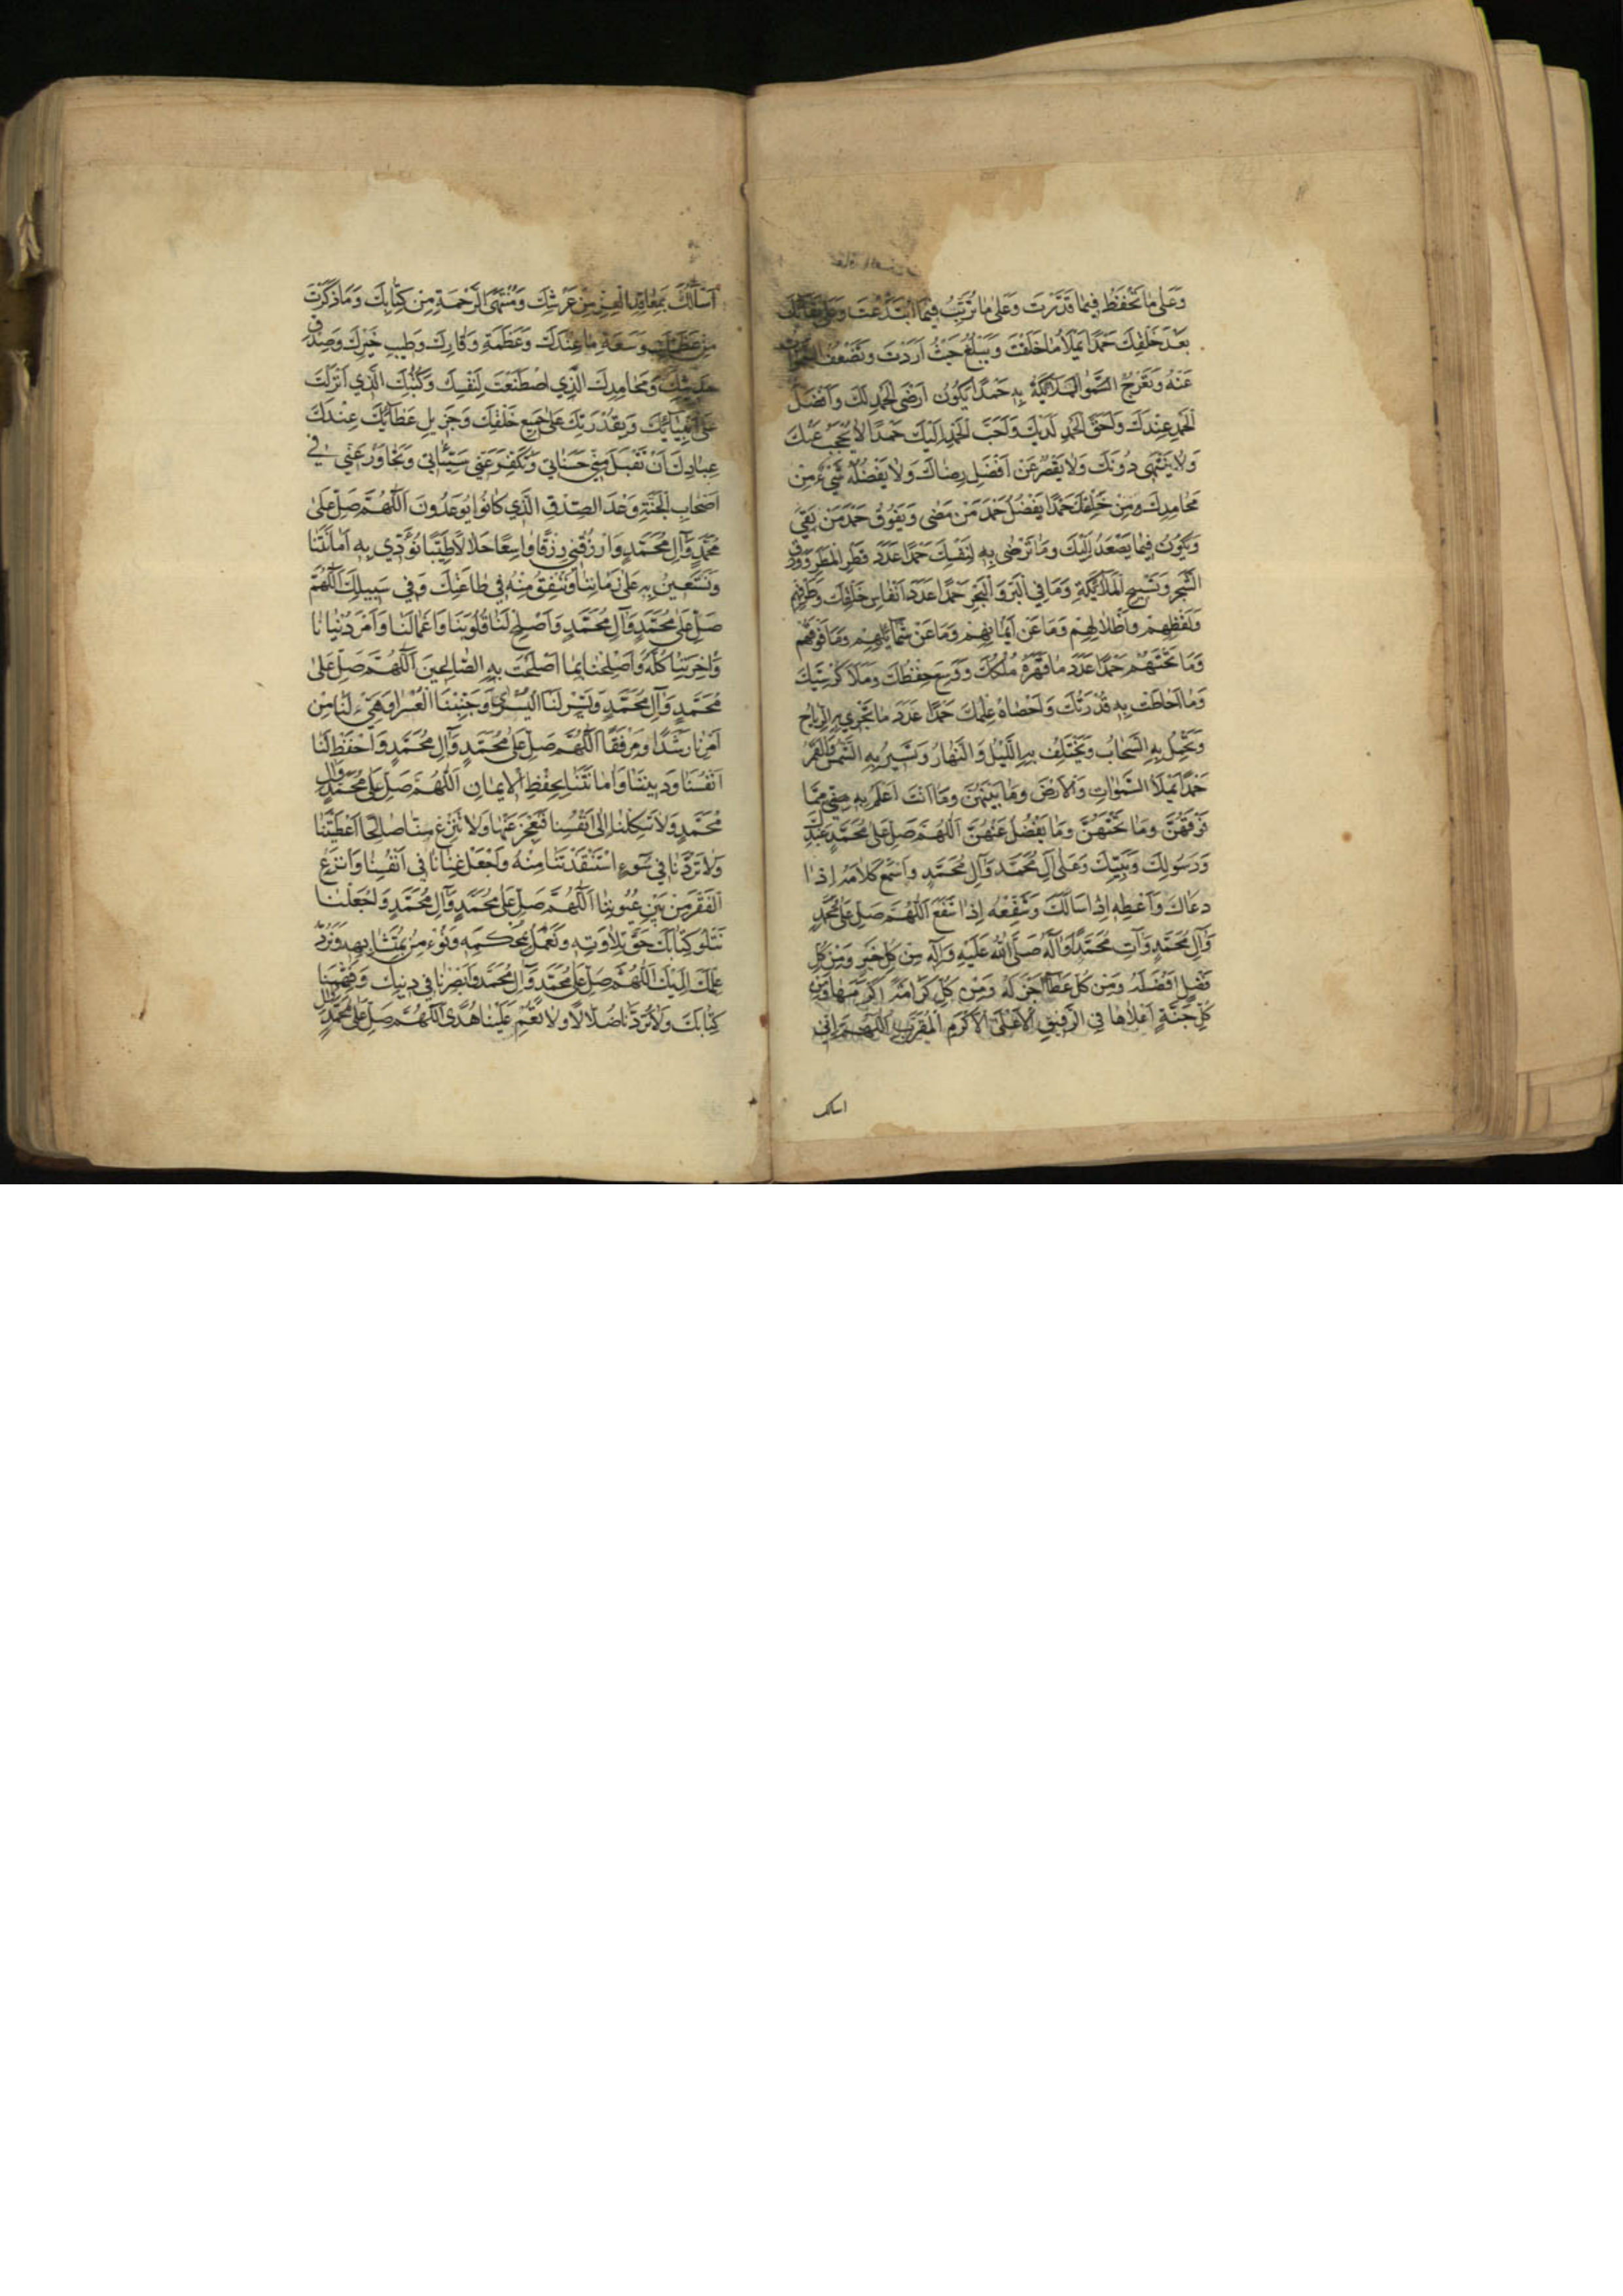 وَعَلىٰ مٰا تَحْفَظُ فِيمٰا قَدَّرْتَ وَعَلىٰ مٰا تُرَتِّبُ فِيمَا ابْتَدَعْتَ وَعَلىٰ بَقٰائِكَ
بَعْدَ خَلْقِكَ حَمْدًا يَمْلَأُ مٰا خَلَقْتَ وَيَبْلُغُ حَيْثُ اَرَدْتَ وَتَضْعُفُ السَّمٰوٰاتُ
عَنْهُ وَتَعْرُجُ الْمَلاٰئِكَةُ بِهِ حَمْدًا يَكُونُ اَرْضَى الْحَمْدِ لَكَ وَاَفْضَلَ
الْحَمْدِ عِنْدَكَ وَاَحَقَّ الْحَمْدِ لَدَيْكَ وَاَحَبَّ الْحَمْدِ اِلَيْكَ حَمْدًا لاٰ يُحْجَبُ عَنْكَ
وَلاٰ يَنْتَهِى دُونَكَ وَلاٰ يَقْصُرُ عَنْ اَفْضَلِ رِضٰاكَ وَلاٰ يَفْضُلُهُ شَيْءٌ مِنْ
مَحٰامِدِكَ مِنْ خَلْقِكَ حَمْدًا يَفْضُلُ حَمْدَ مَنْ مَضٰى وَيَفُوقُ حَمْدَ مَنْ بَقِيَ
وَيَكُونُ فِيمٰا يَصْعَدُ اِلَيْكَ وَمٰا تَرْضٰى بِهِ لِنَفْسِكَ حَمْدًا عَدَدَ قَطْرِ الْمَطَرِ وَوَرَقِ
الشَّجَرِ وَتَسْبِيحِ الْمَلاٰئِكَةِ وَمٰا فِي الْبَرِّ وَالْبَحْرِ حَمْدًا عَدَدَ اَنْفٰاسِ خَلْقِكَ وَطَرْفِهِمْ
وَلَفْظِهِمْ وَاَظْلاٰلِهِمْ وَمٰا عَنْ اَيْمٰانِهِمْ وَمٰا عَنْ شَمٰائِلِهِمْ وَمٰا فَوْقَهُمْ
وَمٰا تَحْتَهُمْ حَمْدًا عَدَدَ مٰا قَهَرَهُ مُلْكُكَ وَوَسِعَ حِفْظُكَ وَمَلَأَ كُرْسِيُّكَ
وَمٰا اَحٰاطَتْ بِهِ قُدْرَتُكَ وَاَحْصٰاهُ عِلْمُكَ حَمْدًا عَدَدَ مٰا تَجْرِي بِهِ الرِّيٰاحُ
وَيَحْمِلُ بِهِ السَّحٰابُ وَيَخْتَلِفُ بِهِ اللَّيْلُ وَالنَّهٰارُ وَتَسِيرُ بِهِ الشَّمْسُ وَالْقَمَرُ
حَمْدًا يَمْلَأُ السَّمٰوٰاتِ وَالْاَرْضَ وَمٰا بَيْنَهُنَّ وَمٰا اَنْتَ اَعْلَمُ بِهِ مِنّي مِمّٰا
فَوْقَهُنَّ وَمٰا تَحْتَهُنَّ وَمٰا يَفْضُلُ عَنْهُنَّ اَللّٰهُمَّ صَلِّ عَلىٰ مُحَمَّدٍ عَبْدِكَ
وَرَسُولِكَ وَنَبِيِّكَ وَعَلىٰ آلِ مُحَمَّدٍ وَآلِ مُحَمَّدٍ وَاسْمَعْ كَلاٰمَهُ اِذٰا
دَعٰاكَ وَاَعْطِهِ اِذٰا سَاَلَكَ وَشَفِّعْهُ اِذٰا شَفَعَ اَللّٰهُمَّ صَلِّ عَلىٰ مُحَمَّدٍ
وَآلِ مُحَمَّدٍ وَآتِ مُحَمَّدًا وَآلَهُ صَلَّى اللّٰهُ عَلَيْهِ وَآلِهِ مِنْ كُلِّ خَيْرٍ وَمِنْ كُلِّ
فَضْلٍ اَفْضَلَهُ وَمِنْ كُلِّ عَطٰاءٍ اَجْزَلَهُ وَمِنْ كُلِّ كَرٰامَةٍ اَكْرَمَهٰا وَمِنْ
كُلِّ جَنَّةٍ اَعْلاٰهٰا فِي الرَّفِيقِ الْاَعْلَى الْاَكْرَمِ الْمُقَرَّبِ اَللّٰهُمَّ اِنّي
اسالك
اَسْاَلُكَ بِمَعٰاقِدِ الْعِزِّ مِنْ عَرْشِكَ وَمُنْتَهَى الرَّحْمَةِ مِنْ كِتٰابِكَ وَمٰا ذَكَرْتَ
مِنْ عَظَمَتِكَ وَسَعَةِ مٰا عِنْدَكَ وَعَظَمَةِ وَقٰارِكَ وَطِيبِ خَيْرِكَ وَصِدْقِ
حَدِيثِكَ وَمَحٰامِدِكَ الَّذِي اصْطَنَعْتَ لِنَفْسِكَ وَكُتُبِكَ الَّذِي اَنْزَلْتَ
عَلىٰ اَنْبِيٰائِكَ وَبِقُدْرَتِكَ عَلىٰ جَمِيعِ خَلْقِكَ وَجَزِيلِ عَطٰائِكَ عِنْدَكَ
عِبٰادِكَ اَنْ تَقْبَلَ مِنّي حَسَنٰاتي وَتُكَفِّرَ عَنّي سَيِّئٰاتي وَتَجٰاوَزْ عَنّي في
اَصْحٰابِ الْجَنَّةِ وَعْدَ الصِّدْقِ الَّذي كٰانُوا يُوعَدُونَ اَللّٰهُمَّ صَلِّ عَلىٰ
مُحَمَّدٍ وَآلِ مُحَمَّدٍ وَارْزُقْنِي رِزْقًا وٰاسِعًا حَلاٰلاً طَيِّبًا نُؤَدِّي بِهِ اَمٰانٰتَنٰا
وَنَسْتَعِينُ بِهِ عَلىٰ زَمٰانِنٰا وَنُنْفِقُ مِنْهُ فِي طٰاعَتِكَ وَفِي سَبِيلِكَ اَللّٰهُمَّ
صَلِّ عَلىٰ مُحَمَّدٍ وَآلِ مُحَمَّدٍ وَاَصْلِحْ لَنٰا قُلُوبَنٰا وَاَعْمٰالَنٰا وَاَمْرَ دُنْيٰانٰا
وَآخِرَتِنٰا كُلَّهُ وَاَصْلِحْنٰا بِمٰا اَصْلَحْتَ بِهِ الصّٰالِحِينَ اَللّٰهُمَّ صَلِّ عَلىٰ
مُحَمَّدٍ وَآلِ مُحَمَّدٍ وَيَسِّرْ لَنَا الْيُسْرىٰ وَجَنِّبْنَا الْعُسْرٰا وَهَيِّئْ لَنٰا مِنْ
اَمْرِنٰا رَشَدًا وَمِرْفَقًا اَللّٰهُمَّ صَلِّ عَلىٰ مُحَمَّدٍ وَآلِ مُحَمَّدٍ وَاحْفَظْ لَنٰا
اَنْفُسَنٰا وَدِينَنٰا وَاَمٰانٰتَنٰا بِحِفْظِ الْاِيمٰانِ اَللّٰهُمَّ صَلِّ عَلىٰ مُحَمَّدٍ وَآلِ
مُحَمَّدٍ وَلاٰ تَكِلْنٰا اِلىٰ اَنْفُسِنٰا فَنَعْجِزَ عَنْهٰا وَلاٰ تَنْزِعْ مِنّٰا صٰالِحًا اَعْطَيْتَنٰا
وَلاٰ تَرُدَّنٰا فِي سُوءٍ اسْتَنْقَذْتَنٰا مِنْهُ وَاجْعَلْ غِنٰانٰا فِي اَنْفُسِنٰا وَانْزِعِ
الْفَقْرَ مِنْ بَيْنِ عُيُونِنٰا اَللّٰهُمَّ صَلِّ عَلىٰ مُحَمَّدٍ وَآلِ مُحَمَّدٍ وَاجْعَلْنٰا
نَتْلُو كِتٰابَكَ حَقَّ تِلاٰوَتِهِ وَنَعْمَلُ بِمُحْكَمِهِ وَنُؤْمِنُ بِمُتَشٰابِهِهِ وَنَرُدُّ
عِلْمَهُ اِلَيْكَ اَللّٰهُمَّ صَلِّ عَلىٰ مُحَمَّدٍ وَآلِ مُحَمَّدٍ وَبَصِّرْنٰا فِي دِينِكَ وَفَهِّمْنٰا
كِتٰابَكَ وَلاٰ تَرُدَّنٰا ضُلاّٰلاً وَلاٰ تُعْمِ عَلَيْنٰا هُدًى اَللّٰهُمَّ صَلِّ عَلىٰ مُحَمَّدٍ وَآلِ